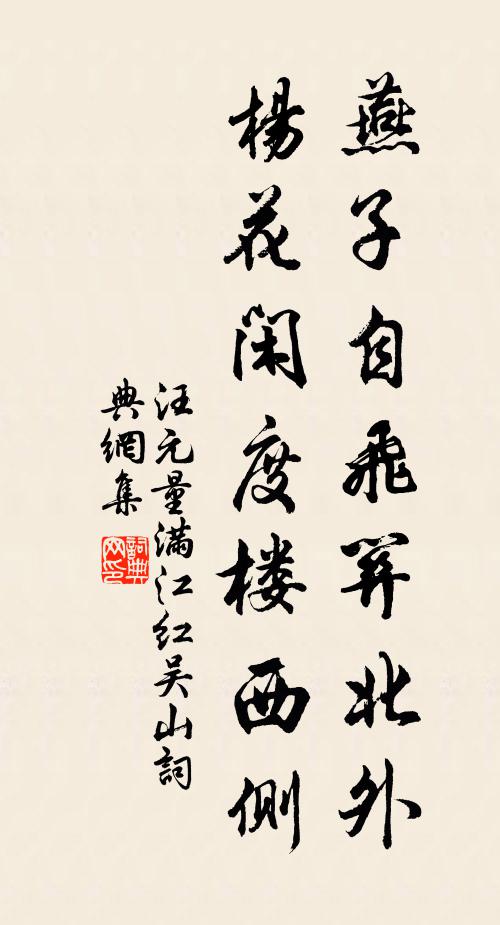 燕子自飛關北外
楊花閑度楼西側
汪元量满江红吴山詞
典網集
詞典网印